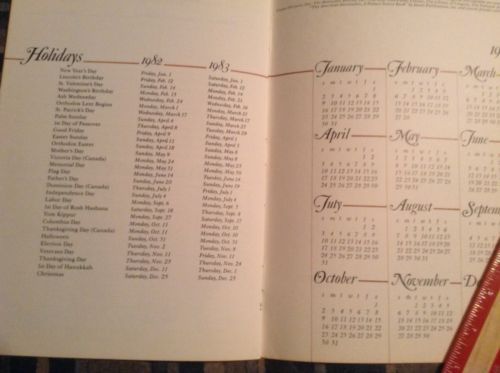 Holidays 1982 1983
New Year's Day Friday, Jan. 1 Saturday, Jan. 1
Lincoln's Birthday Friday, Feb. 12 Saturday, Feb. 12
St. Valentine's Day Sunday, Feb. 14 Monday, Feb. 14
Washington's Birthday Monday, Feb. 15 Monday, Feb. 21
Ash Wednesday Wednesday, Feb. 24 Wednesday, Feb. 16
Orthodox Lent Begins Monday, March 1 Monday, March 21
St. Patrick's Day Wednesday, March 17 Thursday, March 17
Palm Sunday Sunday, April 4 Sunday, March 27
1st Day of Passover Thursday, April 8 Tuesday, March 29
Good Friday Friday, April 9 Friday, April 1
Easter Sunday Sunday, April 11 Sunday, April 3
Orthodox Easter Sunday, April 18 Sunday, May 8
Mother's Day Sunday, May 9 Sunday, May 8
Victoria Day (Canada) Monday, May 24 Monday, May 23
Memorial Day Monday, May 31 Monday, May 30
Flag Day Monday, June 14 Tuesday, June 14
Father's Day Sunday, June 20 Sunday, June 19
Dominion Day (Canada) Thursday, July 1 Friday, July 1
Independence Day Sunday, July 4 Monday, July 4
Labor Day Monday, Sept. 6 Monday, Sept. 5
1st Day of Rosh Hashana Saturday, Sept. 18 Thursday, Sept. 8
Yom Kippur Monday, Sept. 27 Saturday, Sept. 17
Columbus Day Monday, Oct. 11 Monday, Oct. 10
Thanksgiving Day (Canada) Monday, Oct. 11 Monday, Oct. 10
Halloween Sunday, Oct. 31 Monday, Oct. 31
Election Day Tuesday, Nov. 2 Tuesday, Nov. 8
Veterans Day Thursday, Nov. 11 Friday, Nov. 11
Thanksgiving Day Thursday, Nov. 25 Thursday, Nov. 24
1st Day of Hanukkah Saturday, Dec. 11 Thursday, Dec. 1
Christmas Saturday, Dec. 25 Sunday, Dec. 25
January February March
s m t w t f s s m t w t f s
1 1 2 3 4 5
2 3 4 5 6 7 8 6 7 8 9 10 11 12
9 10 11 12 13 14 15 13 14 15 16 17 18 19
16 17 18 19 20 21 22 20 21 22 23 24 25 26
23 24 25 26 27 28 29 27 28
30 31
April May June
s m t w t f s s m t w t f s
1 2 1 2 3 4 5 6 7
3 4 5 6 7 8 9 8 9 10 11 12 13 14
10 11 12 13 14 15 16 15 16 17 18 19 20 21
17 18 19 20 21 22 23 22 23 24 25 26 27 28
24 25 26 27 28 29 30 29 30 31
July August
s m t w t f s s m t w t f s
1 2 1 2 3 4 5 6
3 4 5 6 7 8 9 7 8 9 10 11 12 13
10 11 12 13 14 15 16 14 15 16 17 18 19 20
17 18 19 20 21 22 23 21 22 23 24 25 26 27
24 25 26 27 28 29 30 28 29 30 31
31
October November
s m t w t f s s m t w t f s
1 1 2 3 4 5
2 3 4 5 6 7 8 6 7 8 9 10 11 12
9 10 11 12 13 14 15 13 14 15 16 17 18 19
16 17 18 19 20 21 22 20 21 22 23 24 25 26
23 24 25 26 27 28 29 27 28 29 30
30 31